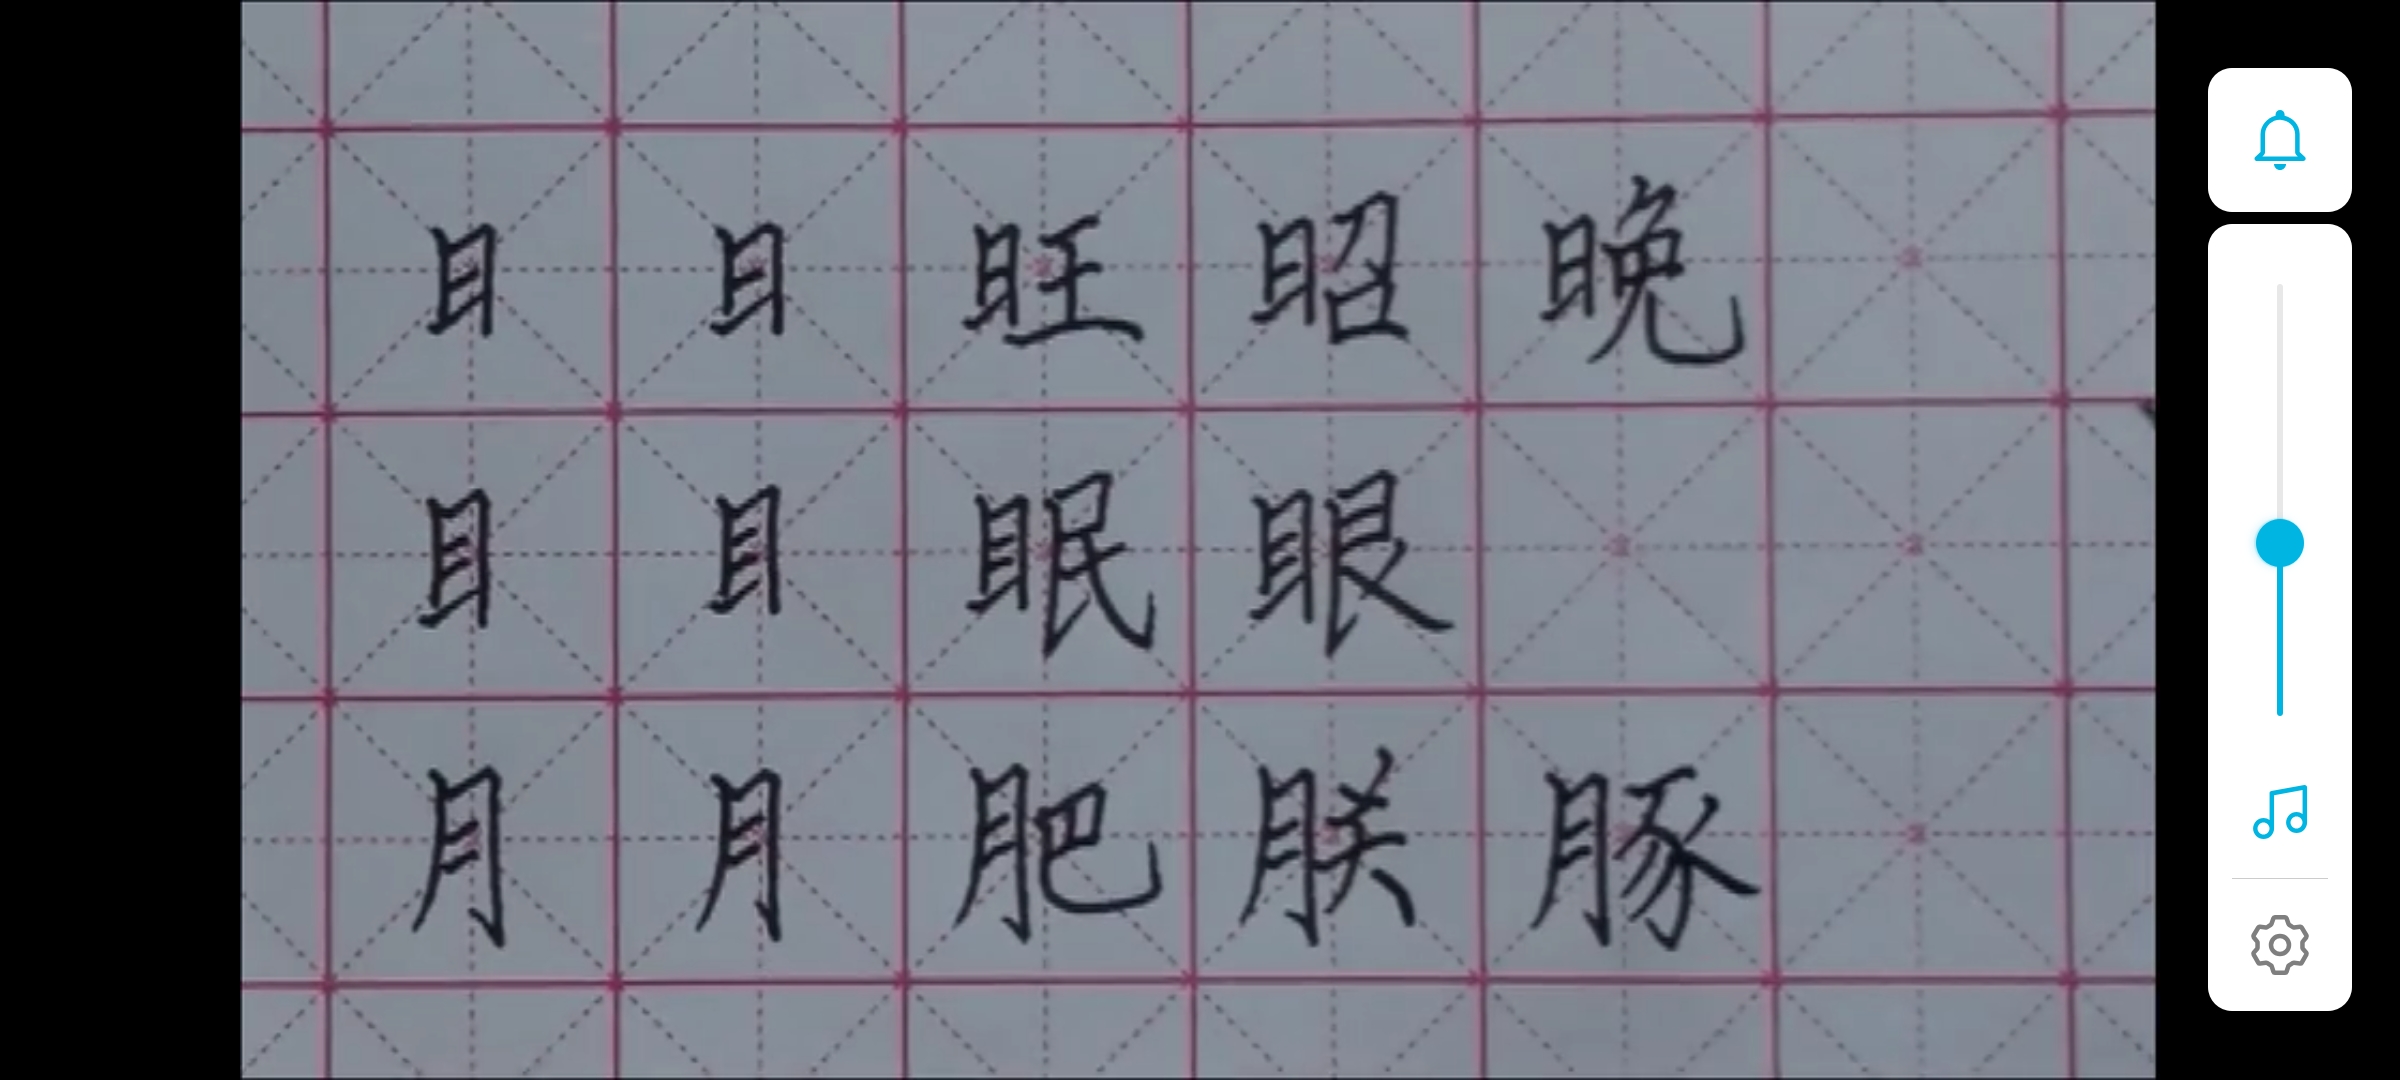 日日旺昭晚
目目眠眼
月月肥朕豚